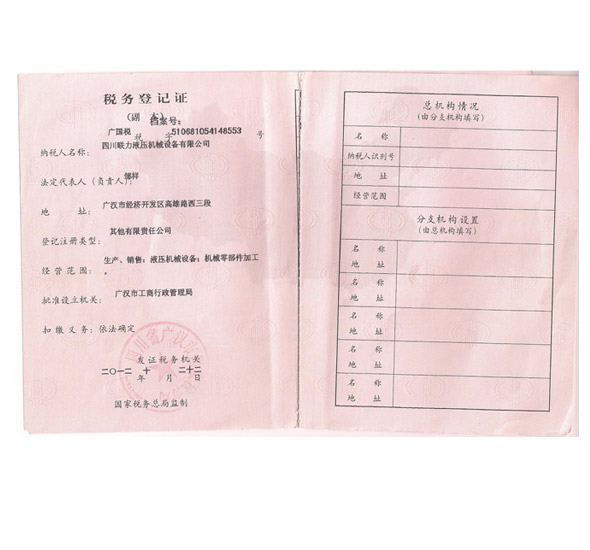 税务登记证
（副 本）
档案号:
广国税 税 字 510681054148553 号
纳税人名称: 四川联力液压机械设备有限公司
法定代表人（负责人）: 邹祥
地 址: 广汉市经济开发区高雄路西三段
登记注册类型: 其他有限责任公司
经营范围: 生产、销售：液压机械设备；机械零部件加工
。
批准设立机关: 广汉市工商行政管理局
扣缴义务: 依法确定
发证税务机关
二〇一二 年 十 月 二十二 日
国家税务总局监制
总机构情况
(由分支机构填写)
名 称
纳税人识别号
地 址
经营范围
分支机构设置
(由总机构填写)
名 称
地 址
名 称
地 址
名 称
地 址
名 称
地 址
名 称
地 址